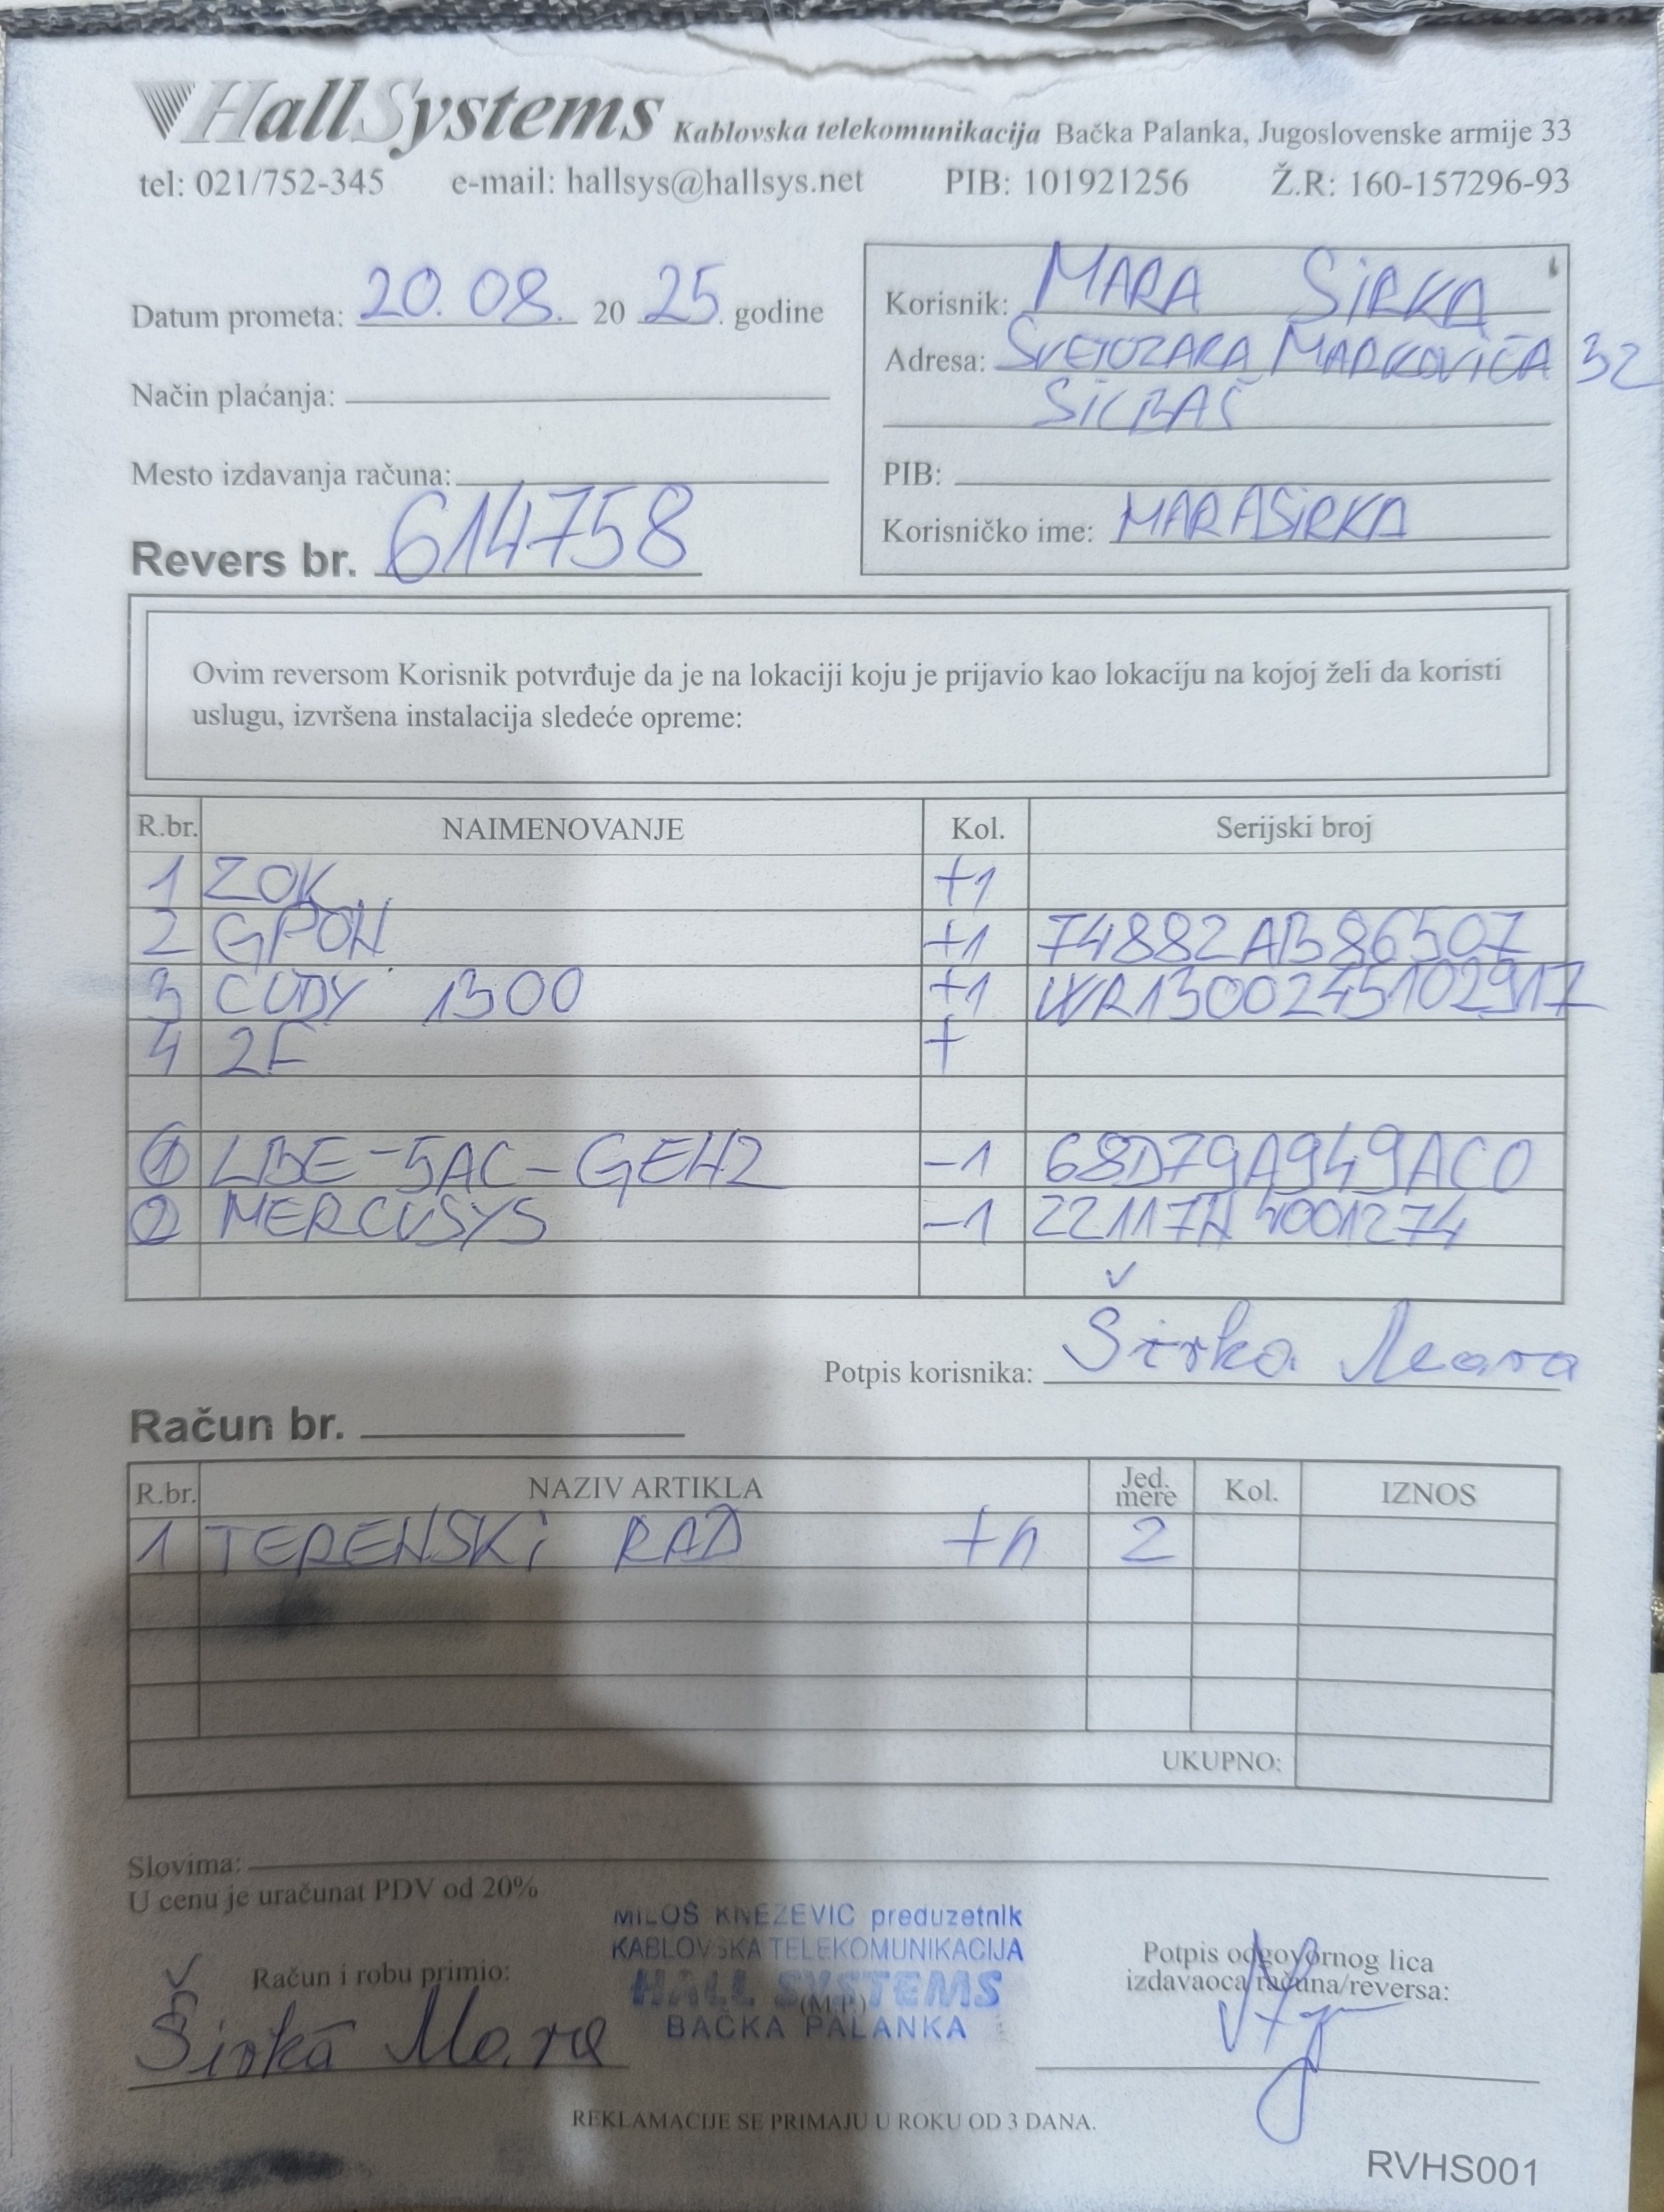 HallSystems Kablovska telekomunikacija Bačka Palanka, Jugoslovenske armije 33
tel: 021/752-345 e-mail: hallsys@hallsys.net PIB: 101921256 Ž.R: 160-157296-93
Datum prometa: 20.08. 2025. godine
Način plaćanja:
Mesto izdavanja računa:
Revers br. 614758
Korisnik: MARA SIRKA
Adresa: SVETOZARA MARKOVIĆA 32
SILBAŠ
PIB:
Korisničko ime: MARASIRKA
Ovim reversom Korisnik potvrđuje da je na lokaciji koju je prijavio kao lokaciju na kojoj želi da koristi
uslugu, izvršena instalacija sledeće opreme:
R.br. NAIMENOVANJE Kol. Serijski broj
1 ZOK +1
2 GPON +1 74882AB86507
3 CUDY 1300 +1 WR1300245102917
4 2F +
1 LBE-5AC-GEN2 -1 68D79A949AC0
2 MERCUSYS -1
Potpis korisnika: Širka Mara
Račun br.
R.br. NAZIV ARTIKLA Jed. mere Kol. IZNOS
1 TERENSKI RAD 2
UKUPNO:
Slovima:
U cenu je uračunat PDV od 20%
MILOŠ KNEZEVIC preduzetnik
KABLOVSKA TELEKOMUNIKACIJA
HALL SYSTEMS
(M.P.)
BAČKA PALANKA
Račun i robu primio:
Širka Mara
Potpis odgovornog lica
izdavaoca računa/reversa:
REKLAMACIJE SE PRIMAJU U ROKU OD 3 DANA.
RVHS001